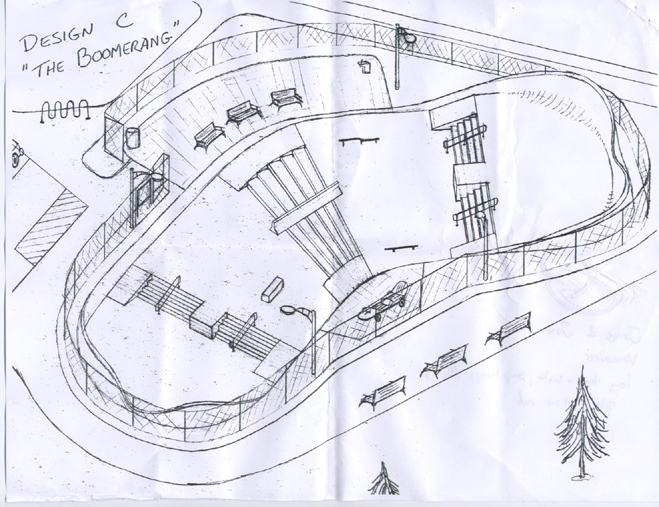 DESIGN C
"THE BOOMERANG"